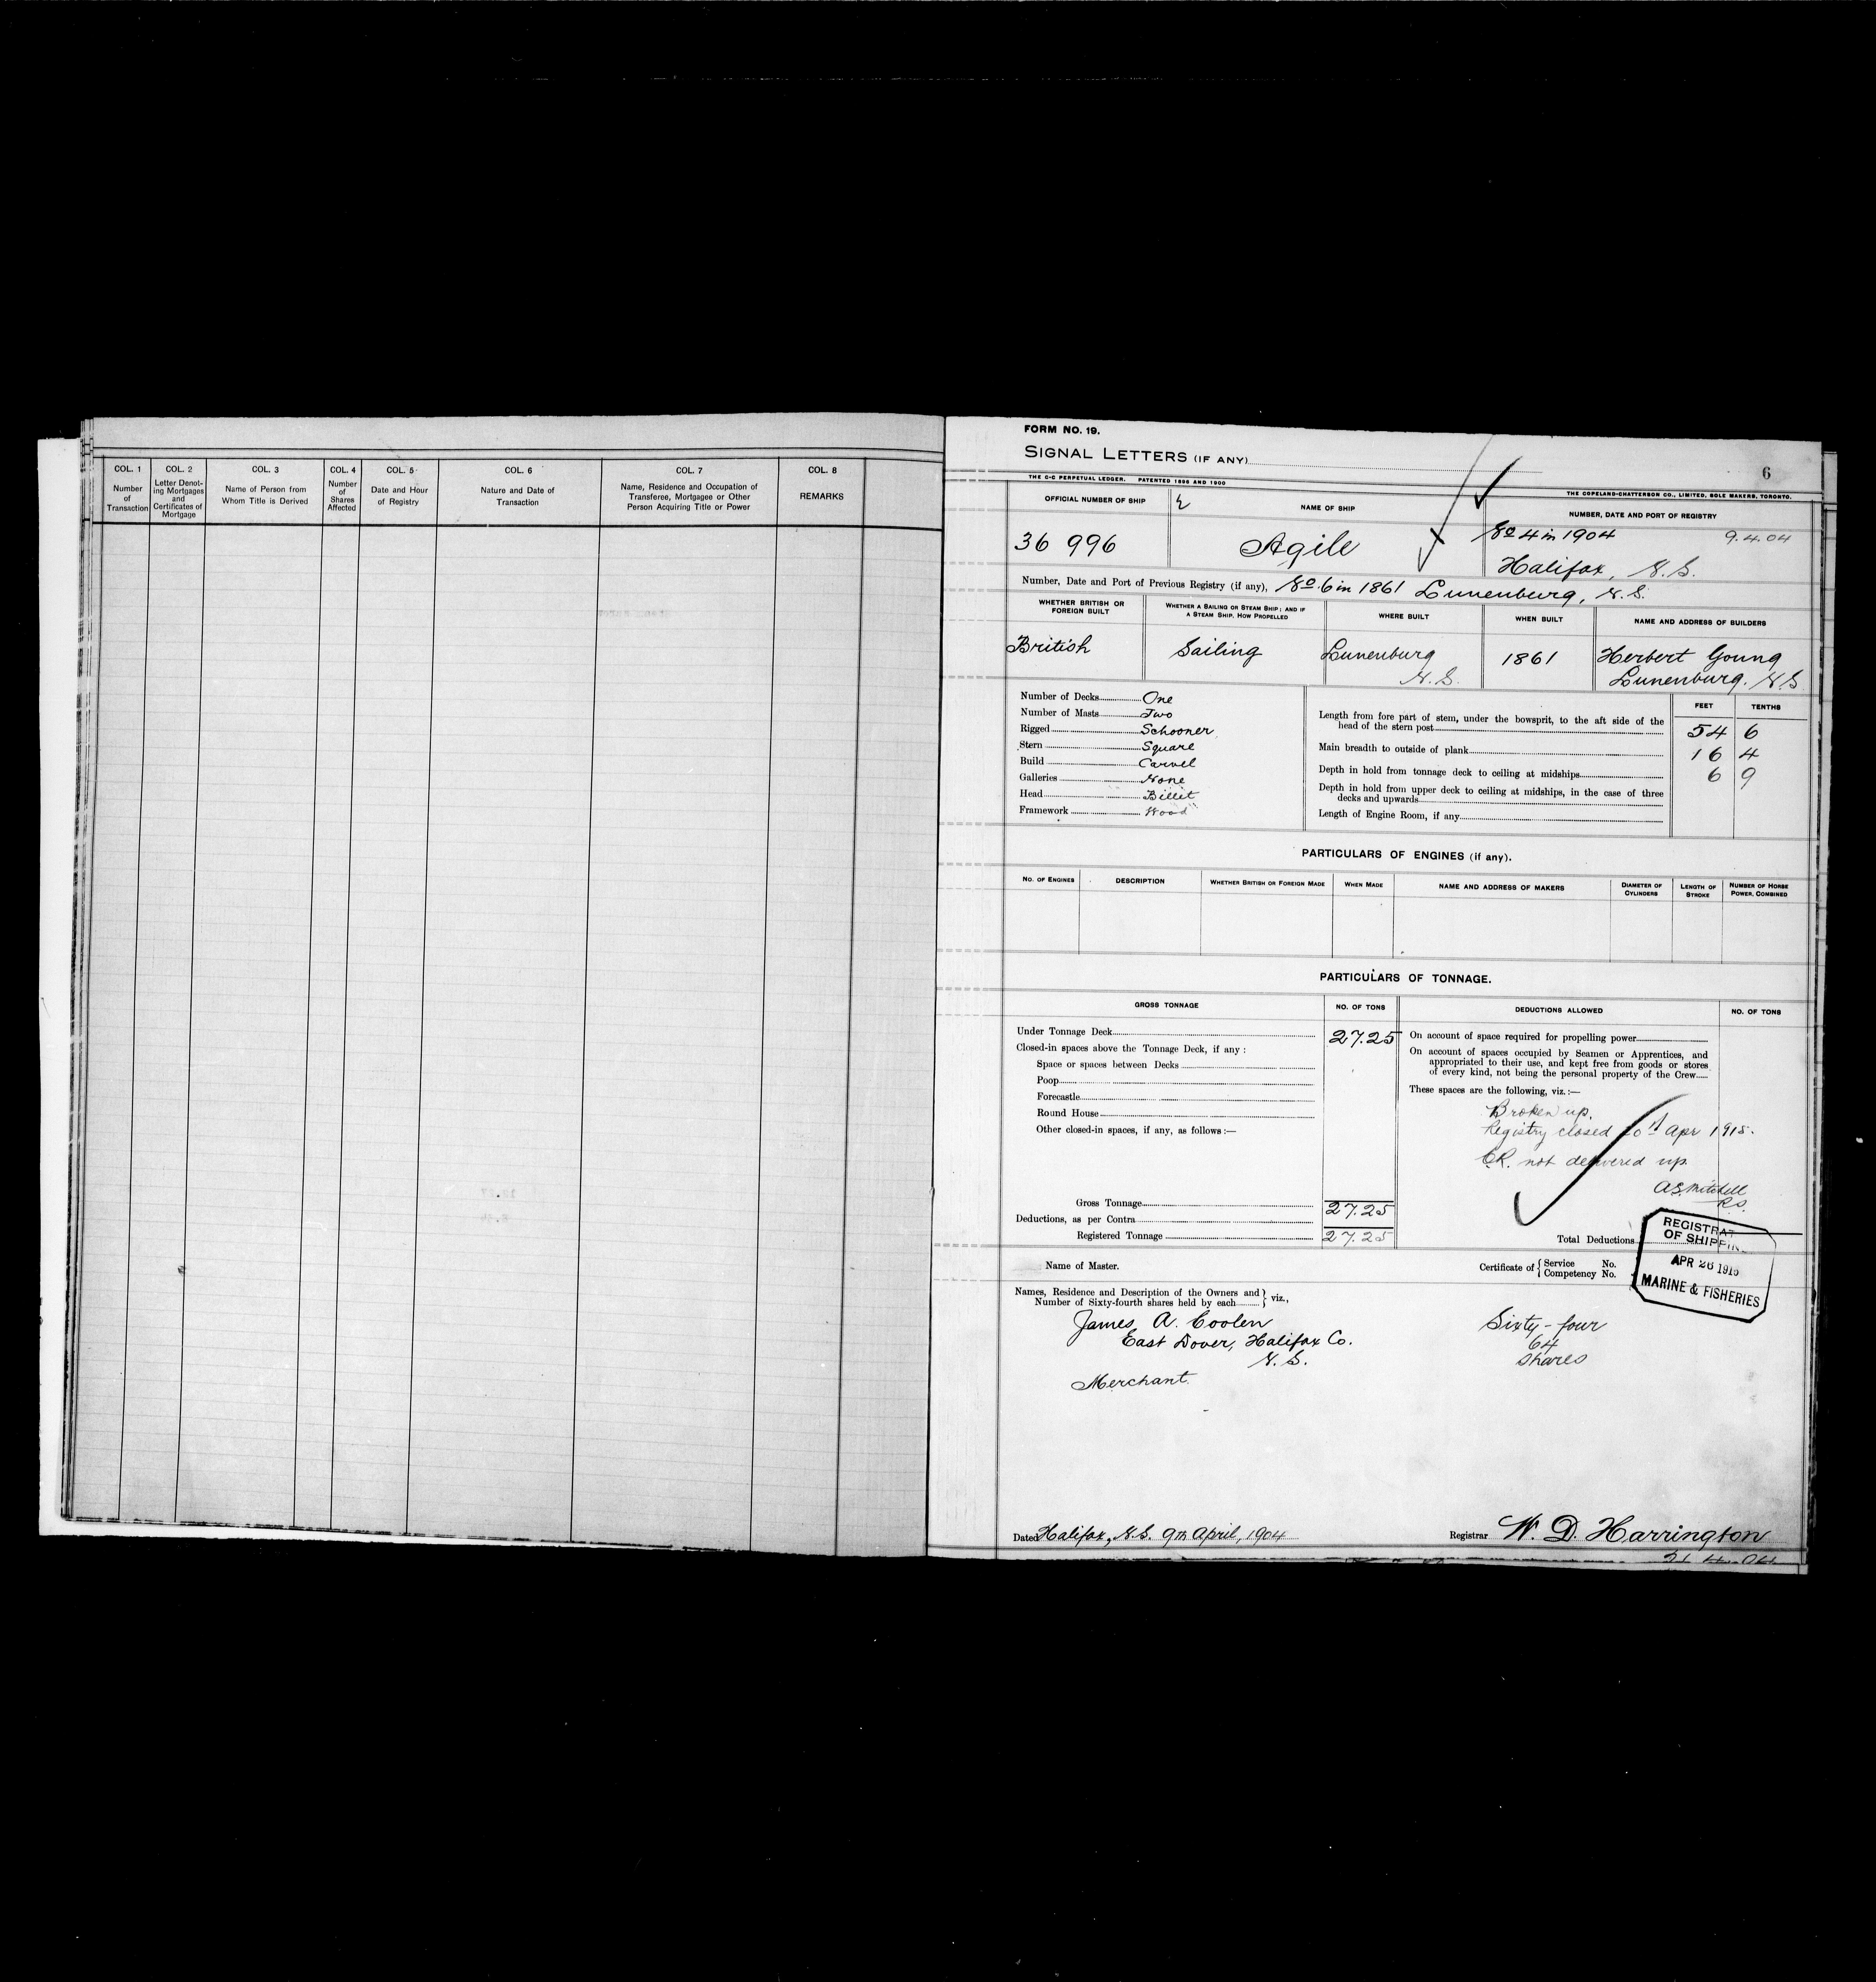 COL. 1
Number
of
Transaction
COL. 2
Letter Denot-
ing Mortgages
and
Certificates of
Mortgage
COL. 3
Name of Person from
Whom Title is Derived
COL. 4
Number
of
Shares
Affected
COL. 5
Date and Hour
of Registry
COL. 6
Nature and Date of
Transaction
COL. 7
Name, Residence and Occupation of
Transferee, Mortgagee or Other
Person Acquiring Title or Power
COL. 8
REMARKS
FORM NO. 19.
SIGNAL LETTERS (IF ANY)
6
THE C-C PERPETUAL LEDGER. PATENTED 1896 AND 1900
THE COPELAND-CHATTERSON CO., LIMITED, SOLE MAKERS, TORONTO.
OFFICIAL NUMBER OF SHIP
NAME OF SHIP
NUMBER, DATE AND PORT OF REGISTRY
36 996
Agile
No 4 in 1904 9.4.04
Halifax, N.S.
Number, Date and Port of Previous Registry (if any), No. 6 in 1861 Lunenburg, N.S.
WHETHER BRITISH OR
FOREIGN BUILT
WHETHER A SAILING OR STEAM SHIP; AND IF
A STEAM SHIP, HOW PROPELLED
WHERE BUILT
WHEN BUILT
NAME AND ADDRESS OF BUILDERS
British
Sailing
Lunenburg
N.S.
1861
Herbert Young
Lunenburg. N.S.
Number of Decks One
Number of Masts Two
Rigged Schooner
Stern Square
Build Carvel
Galleries None
Head Billet
Framework Wood
FEET TENTHS
Length from fore part of stem, under the bowsprit, to the aft side of the
head of the stern post 54 6
Main breadth to outside of plank 16 4
Depth in hold from tonnage deck to ceiling at midships 6 9
Depth in hold from upper deck to ceiling at midships, in the case of three
decks and upwards
Length of Engine Room, if any
PARTICULARS OF ENGINES (if any).
NO. OF ENGINES
DESCRIPTION
WHETHER BRITISH OR FOREIGN MADE
WHEN MADE
NAME AND ADDRESS OF MAKERS
DIAMETER OF
CYLINDERS
LENGTH OF
STROKE
NUMBER OF HORSE
POWER, COMBINED
PARTICULARS OF TONNAGE.
GROSS TONNAGE
NO. OF TONS
DEDUCTIONS ALLOWED
NO. OF TONS
Under Tonnage Deck 27.25
Closed-in spaces above the Tonnage Deck, if any :
Space or spaces between Decks
Poop
Forecastle
Round House
Other closed-in spaces, if any, as follows :—
Gross Tonnage 27.25
Deductions, as per Contra
Registered Tonnage 27.25
On account of space required for propelling power
On account of spaces occupied by Seamen or Apprentices, and
appropriated to their use, and kept free from goods or stores
of every kind, not being the personal property of the Crew
These spaces are the following, viz. :—
Broken up.
Registry closed Apr 1915.
C.R. not delivered up.
A.S. Mitchell
R.S.
Total Deductions
REGISTRAR
OF SHIPPING
APR 26 1915
MARINE & FISHERIES
Name of Master.
Certificate of { Service No.
Competency No.
Names, Residence and Description of the Owners and } viz.,
Number of Sixty-fourth shares held by each
James A. Coolen
East Dover, Halifax Co.
N.S.
Merchant.
Sixty-four
64
shares
Dated Halifax, N.S. 9th April, 1904
Registrar W. D. Harrington